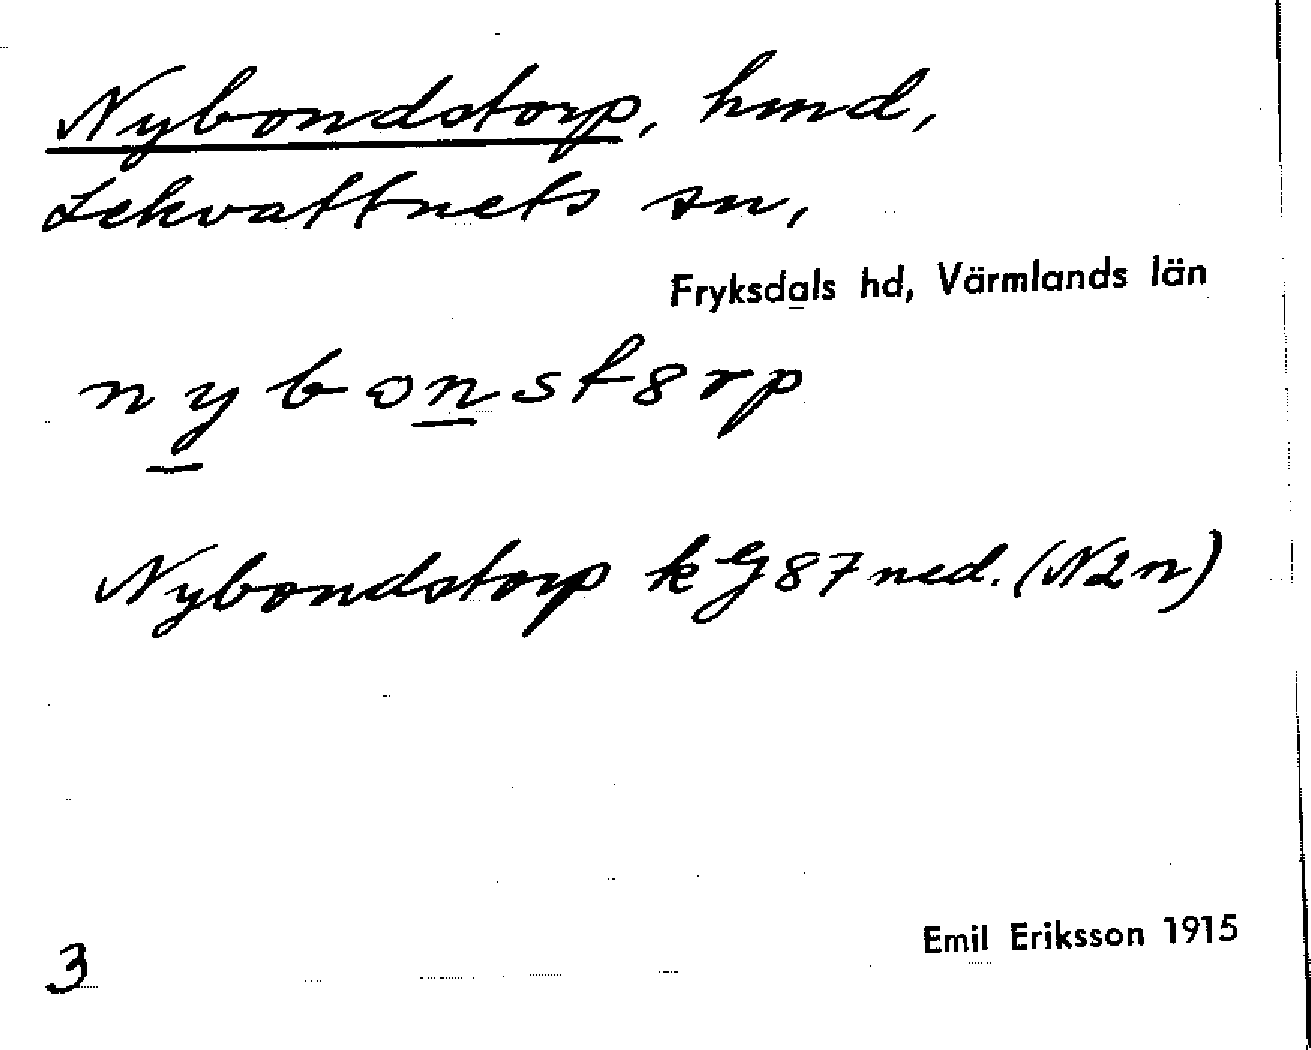 Nybondstorp, hmd,
Lekvattnets sn,
Fryksdals hd, Värmlands län
nybonst8rp
Nybondstorp k G 87 ned. (N2n)
3
Emil Eriksson 1915